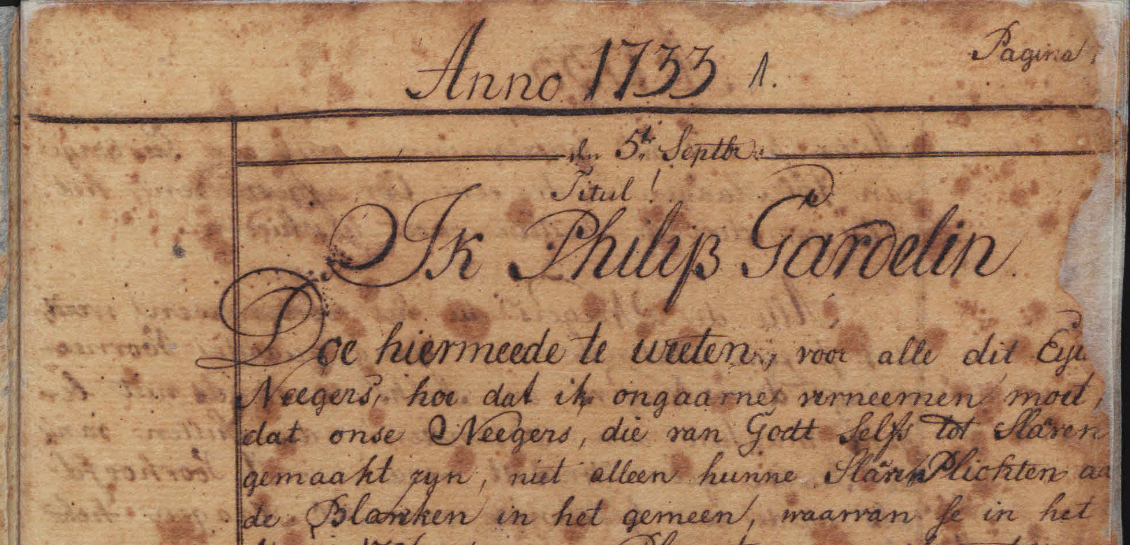 Anno 1733 1.
Pagina
den 5t. Septbr
Titul!
Ik Philip Gardelin.
Doe hiermeede te weeten, voor alle dit
Neegers, hoe dat ik ongaarne verneemen moet,
dat onse Neegers, die van Godt selfs tot Slaven
gemaakt zyn, niet alleen hunne Slaven Plichten
de Blanken in het gemeen, waarvan se in het